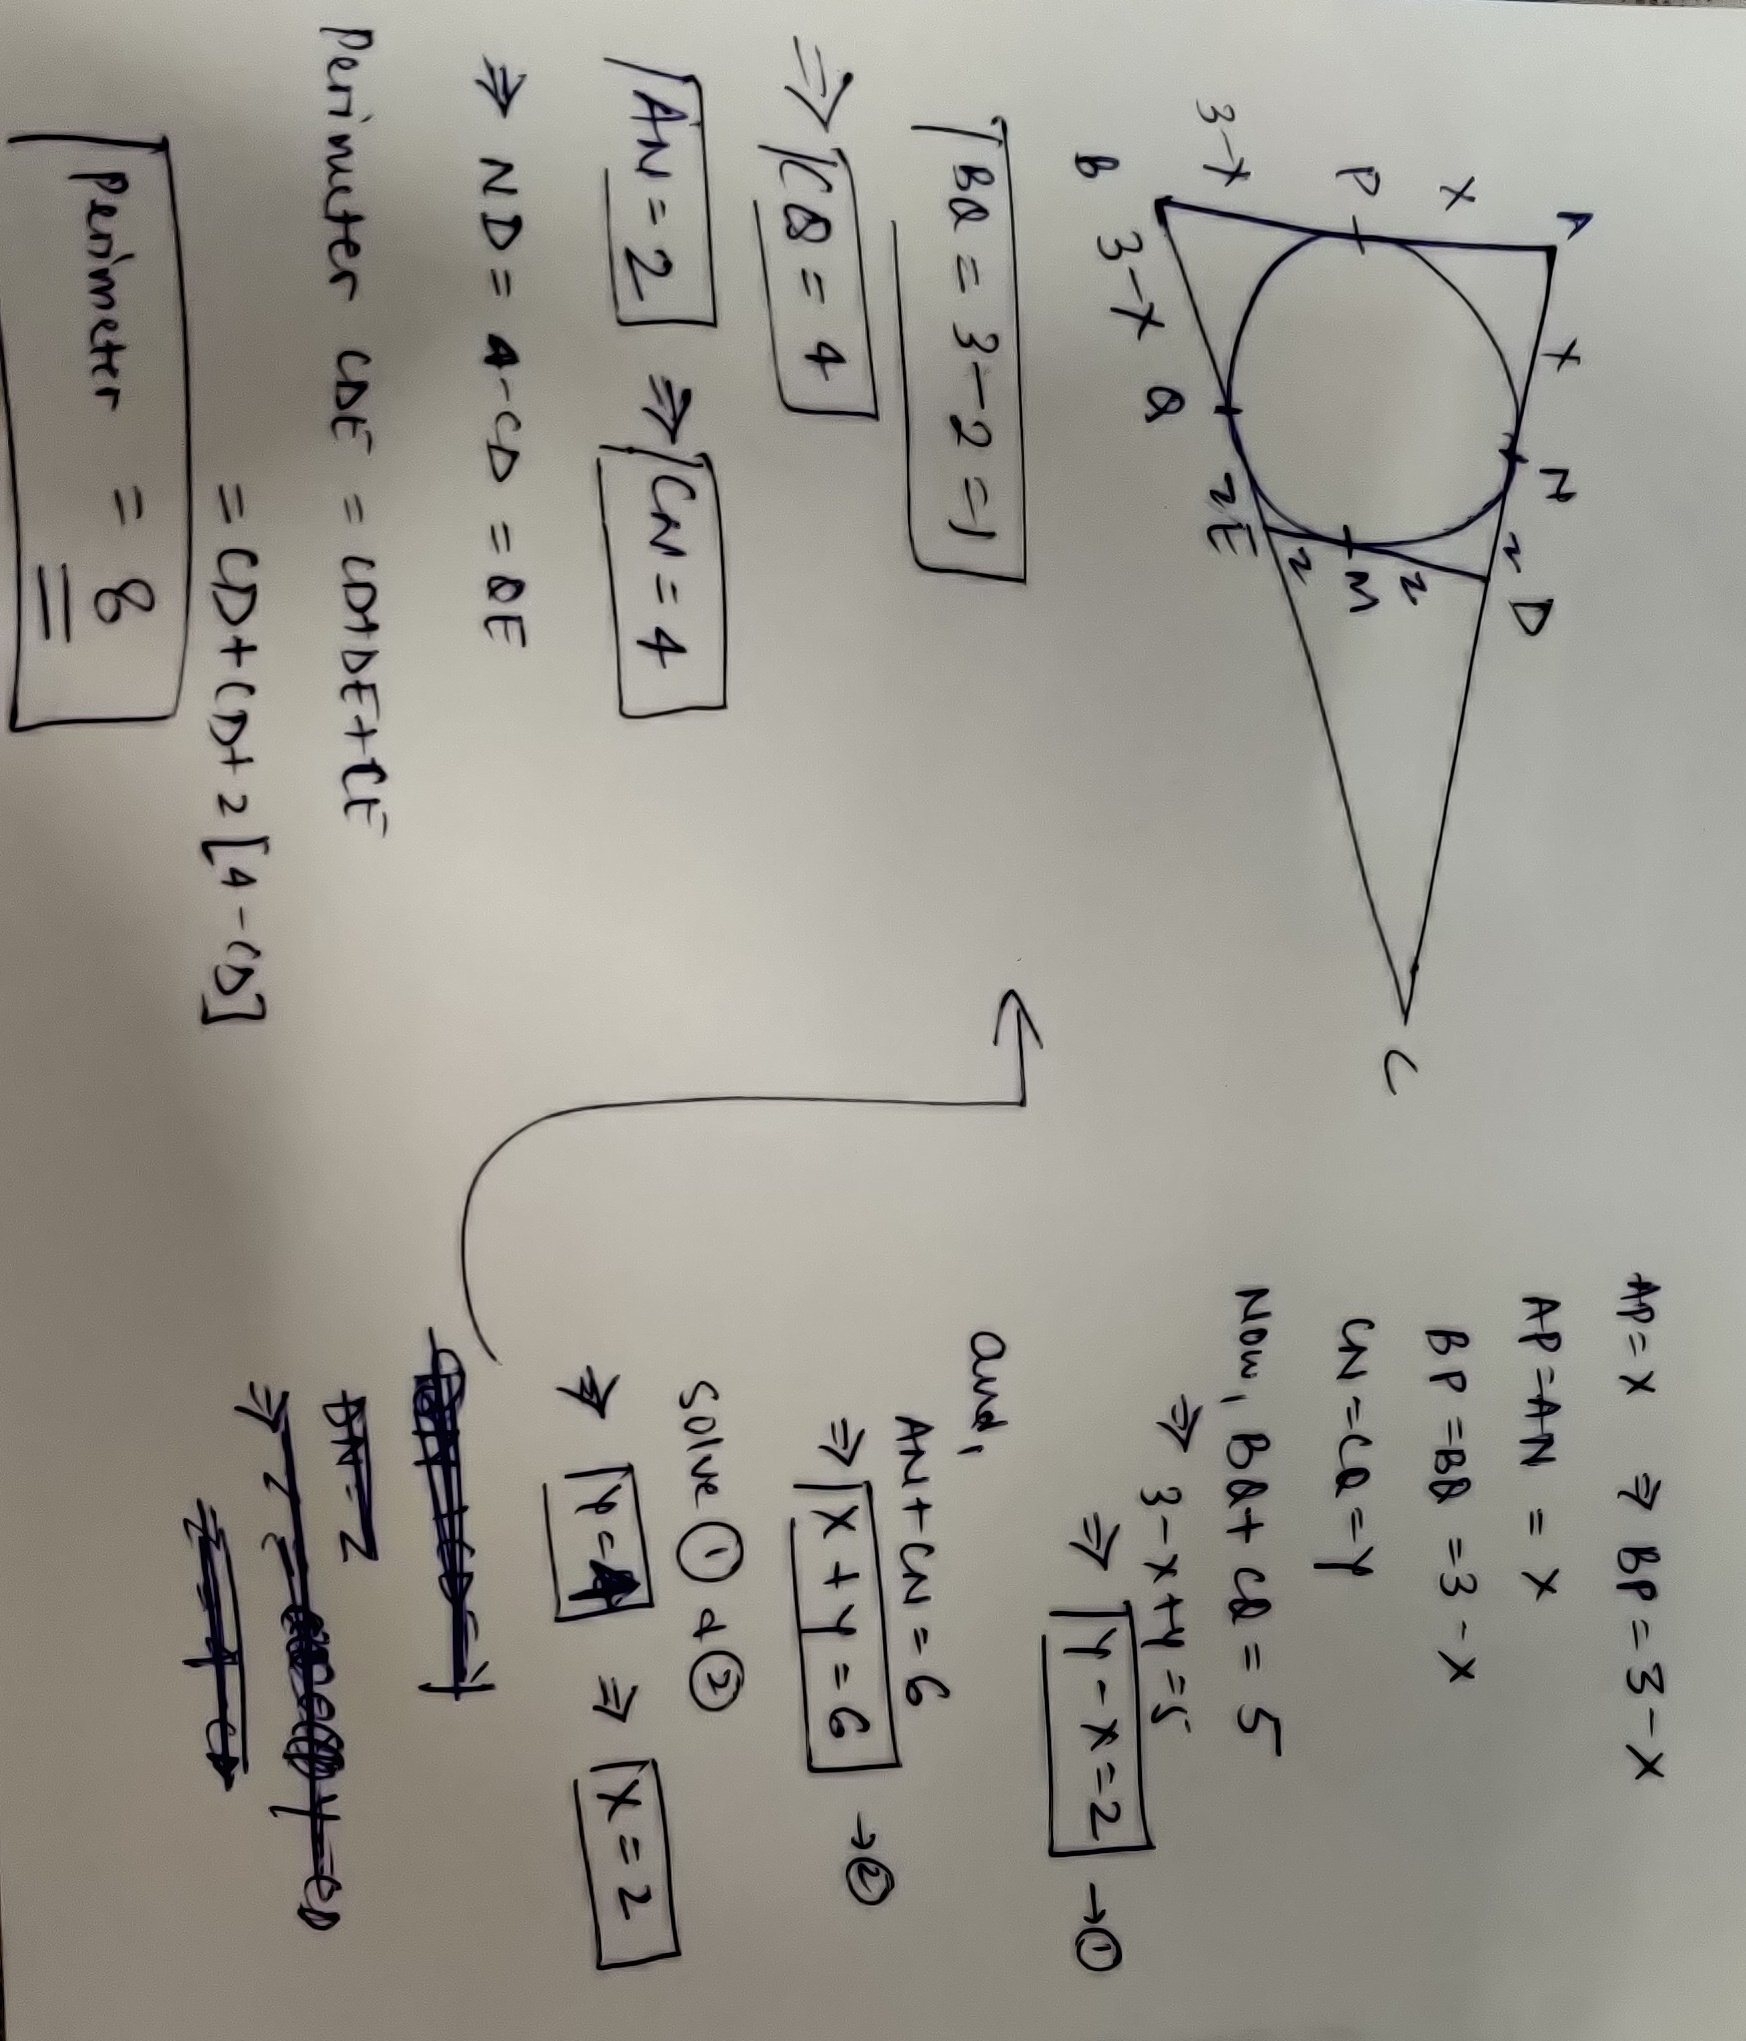 A
X
X
P
N
3-X
2
D
B
2
M
2
E
2
3-X
Q
C
BQ = 3-2 = 1
⇒ CQ = 4
AN = 2 ⇒ CN = 4
⇒ ND = 4-CD = QE
Perimeter CDE = CD+DE+CE
= CD+CD+2[4-CD]
Perimeter = 8
AP=X ⇒ BP=3-X
AP=AN = X
BP=BQ =3-X
CN=CQ=Y
Now, BQ+CQ = 5
⇒ 3-X+Y=5
⇒ Y-X=2 →①
and,
AN+CN=6
⇒ X+Y=6 →②
Solve ① & ②
⇒ Y=4 ⇒ X=2
DN=Z